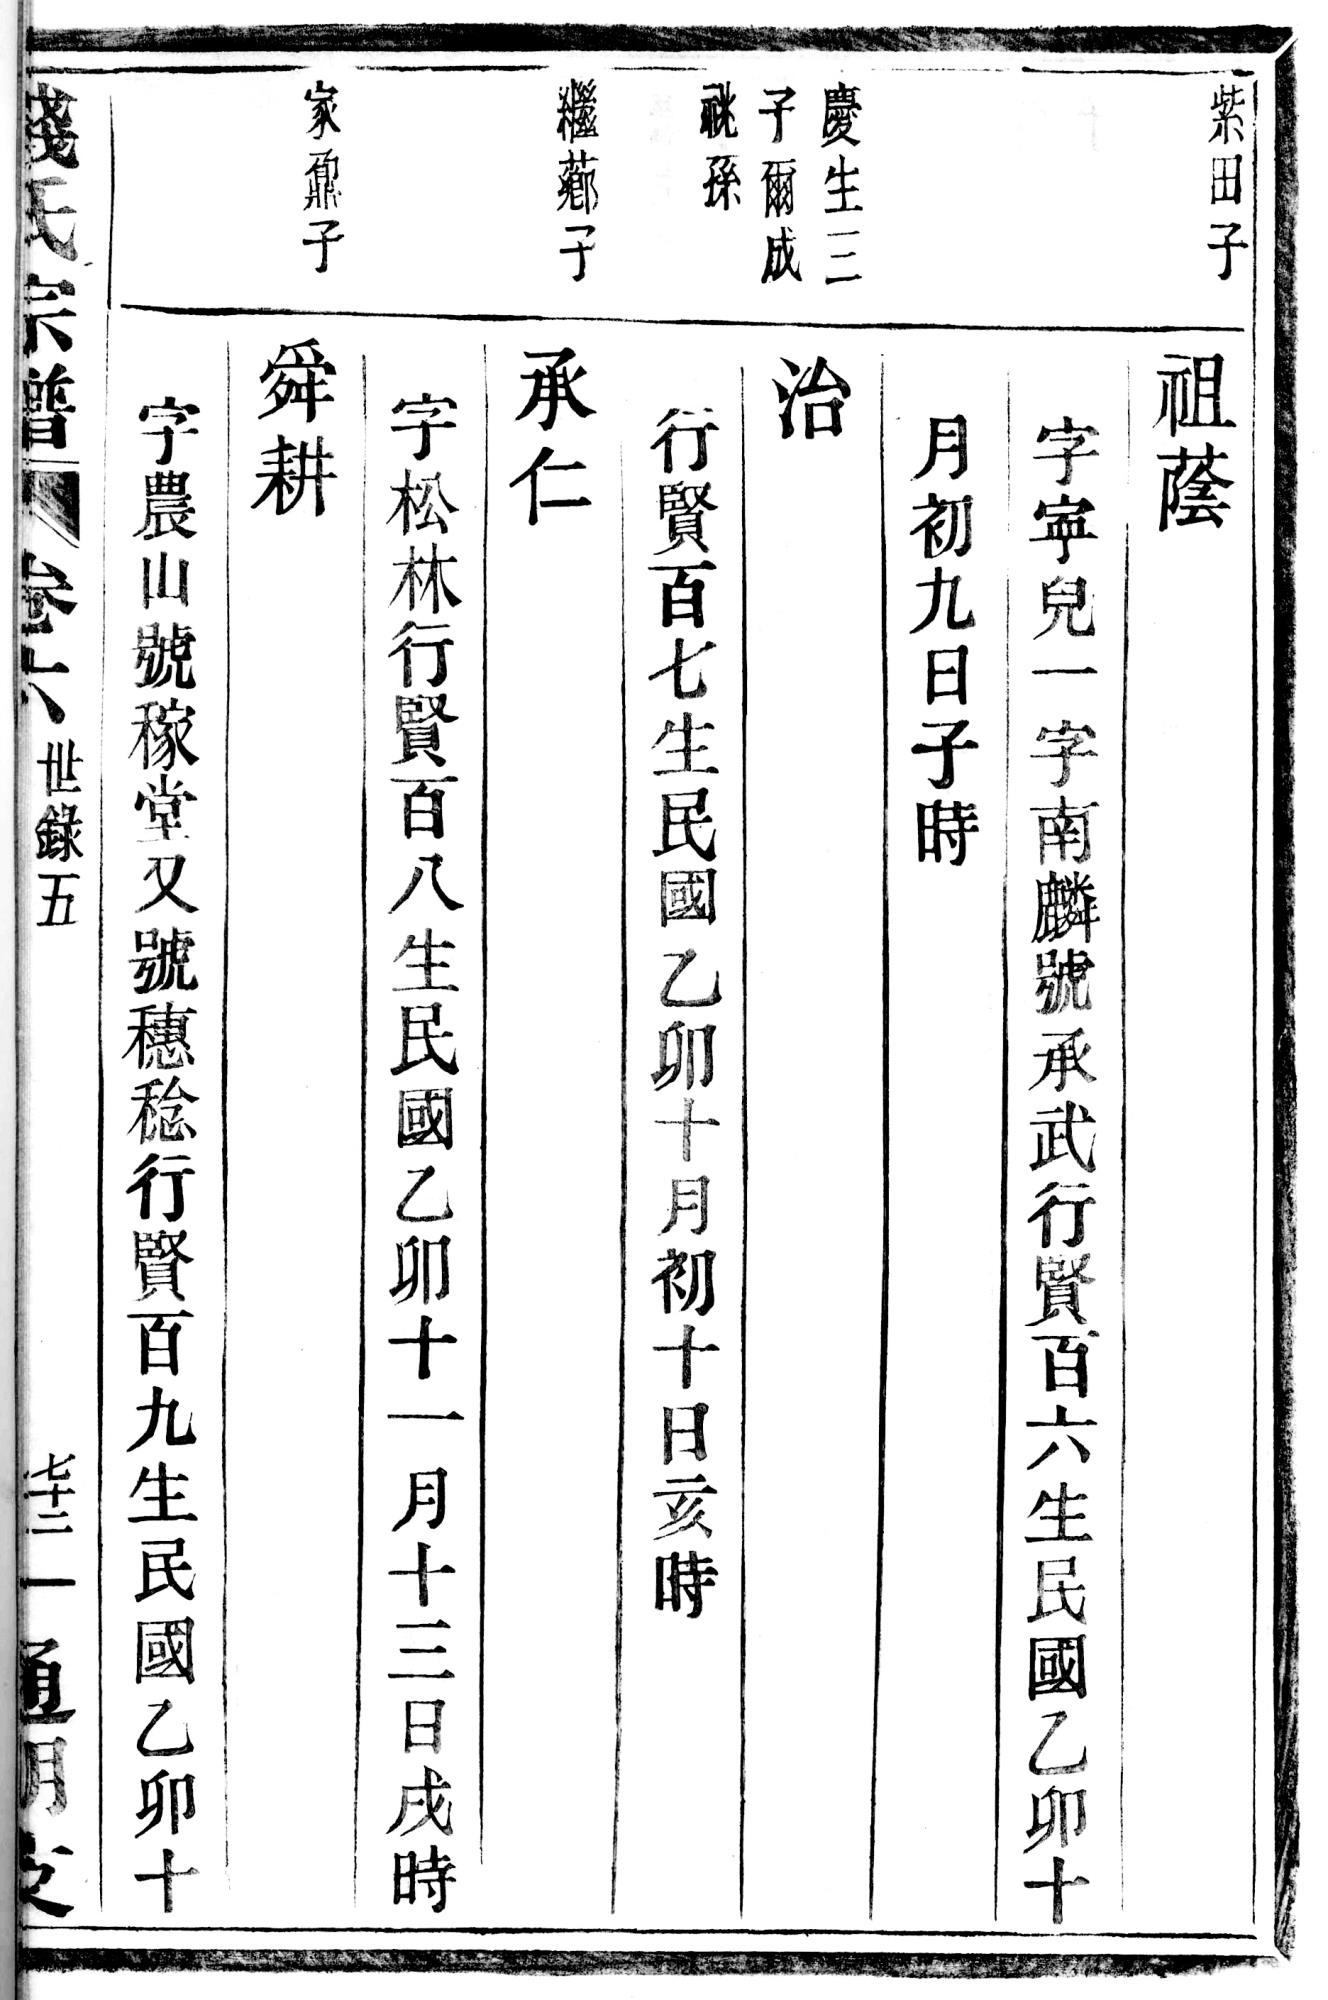 紫田子
祖蔭
字寧兒一字南麟號承武行賢百六生民國乙卯十
月初九日子時
慶生三
子爾成
祧孫
治
行賢百七生民國乙卯十月初十日亥時
繼薌子
承仁
字松林行賢百八生民國乙卯十一月十三日戌時
家鼐子
舜耕
字農山號稼堂又號穗稔行賢百九生民國乙卯十
錢氏宗譜 卷六 世錄五 七十二 一 通明支